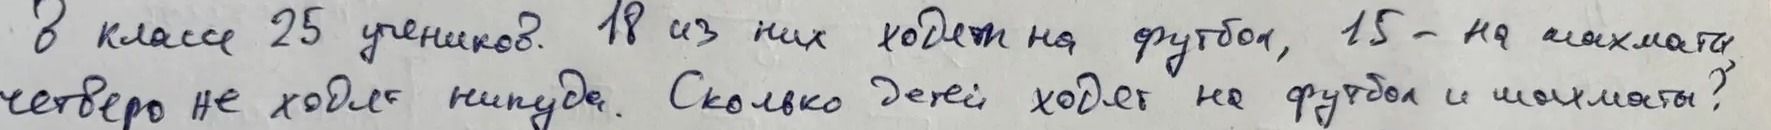 В классе 25 учеников. 18 из них ходят на футбол, 15 - на шахматы,
четверо не ходят никуда. Сколько детей ходят на футбол и шахматы?